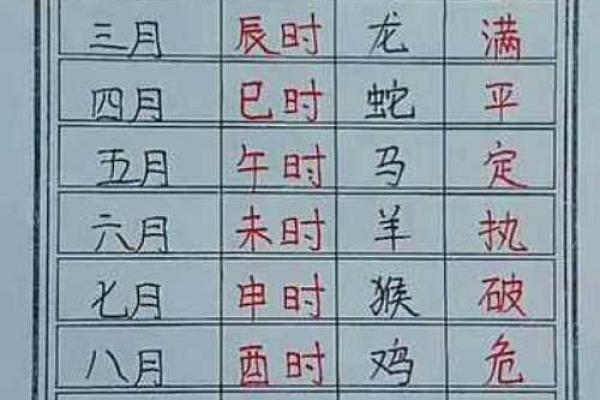 三月 辰时 龙 满
四月 巳时 蛇 平
五月 午时 马 定
六月 未时 羊 执
七月 申时 猴 破
八月 酉时 鸡 危